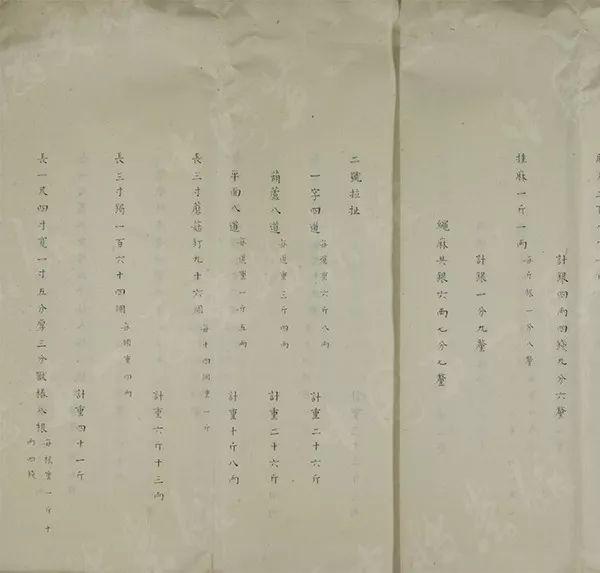 計銀四兩四錢九分六釐
挂麻一斤一兩 每斤銀一分八釐
計銀一分九釐
繩麻共銀六兩七分七釐
二號拉扯
一字四道 每道重六斤八兩 計重二十六斤
葫蘆八道 每道重三斤四兩 計重二十六斤
半面八道 每道重一斤五兩 計重十斤八兩
長三寸蘑菇釘九十六個 每十四個重一斤
計重六斤十三兩
長三寸鋦一百六十四個 每個重四兩
計重四十一斤
長一尺四寸寬一寸五分厚三分獸樁八根 每根重一斤十兩四錢